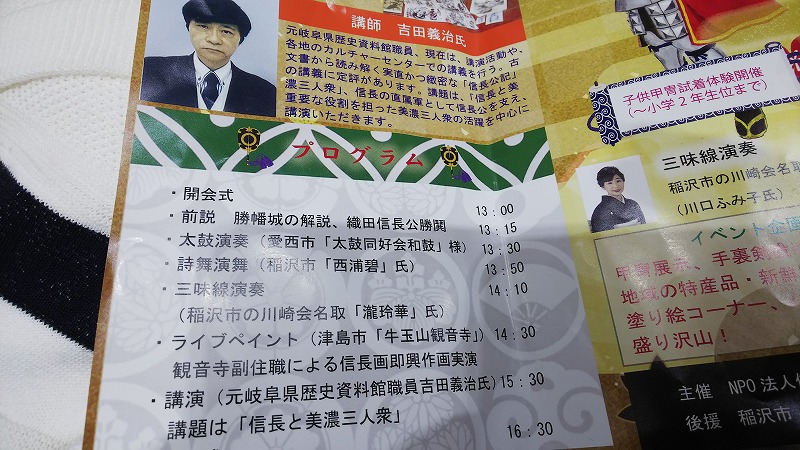 講師 吉田義治氏
元岐阜県歴史資料館職員、現在は、講演活動や、
各地のカルチャーセンターでの講義を行う。古
文書から読み解く実直かつ緻密な「信長公記」
の講義に定評があります。講題は、「信長と美
濃三人衆」、信長の直属軍として信長公を支え、
重要な役割を担った美濃三人衆の活躍を中心に
講演いただきます。
プログラム
・開会式 13:00
・前説 勝幡城の解説、織田信長公勝鬨 13:15
・太鼓演奏(愛西市「太鼓同好会和鼓」様) 13:30
・詩舞演舞(稲沢市「西浦碧」氏) 13:50
・三味線演奏 14:10
(稲沢市の川崎会名取「瀧玲華」氏)
・ライブペイント(津島市「牛玉山観音寺」) 14:30
観音寺副住職による信長画即興作画実演
・講演(元岐阜県歴史資料館職員吉田義治氏) 15:30
講題は「信長と美濃三人衆」
16:30
子供甲冑試着体験開催
(～小学2年生位まで)
三味線演奏
稲沢市の川崎会名取
(川口ふみ子氏)
イベント企画
甲冑展示、手裏剣
地域の特産品・新鮮
塗り絵コーナー、
盛り沢山!
主催 NPO法人
後援 稲沢市